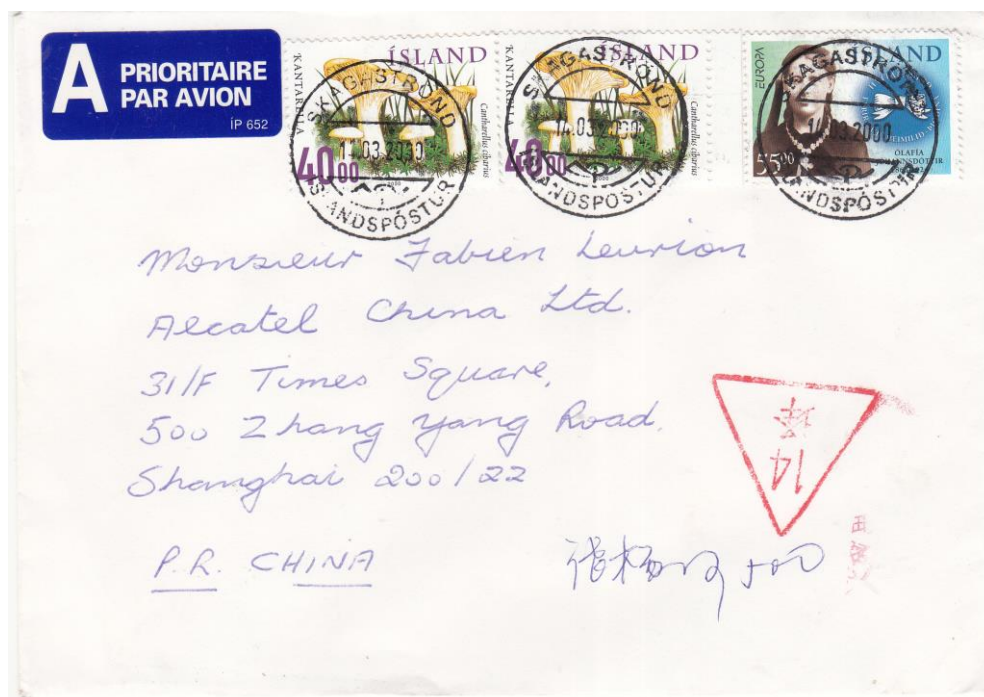 A PRIORITAIRE
PAR AVION
ÍP 652
ÍSLAND
KANTARELLA
Cantharellus cibarius
4000
SKAGASTRÖND
14.03.2000
ÍSLANDSPÓSTUR
ÍSLAND
KANTARELLA
Cantharellus cibarius
4000
SKAGASTRÖND
14.03.2000
ÍSLANDSPÓSTUR
EUROPA
ÍSLAND
ÓLAFÍA
JÓHANNSDÓTTIR
5500
SKAGASTRÖND
14.03.2000
ÍSLANDSPÓSTUR
Monsieur Fabien Leurion
Alcatel China Ltd.
31/F Times Square,
500 Zhang Yang Road.
Shanghai 200122
P.R. CHINA
500
14